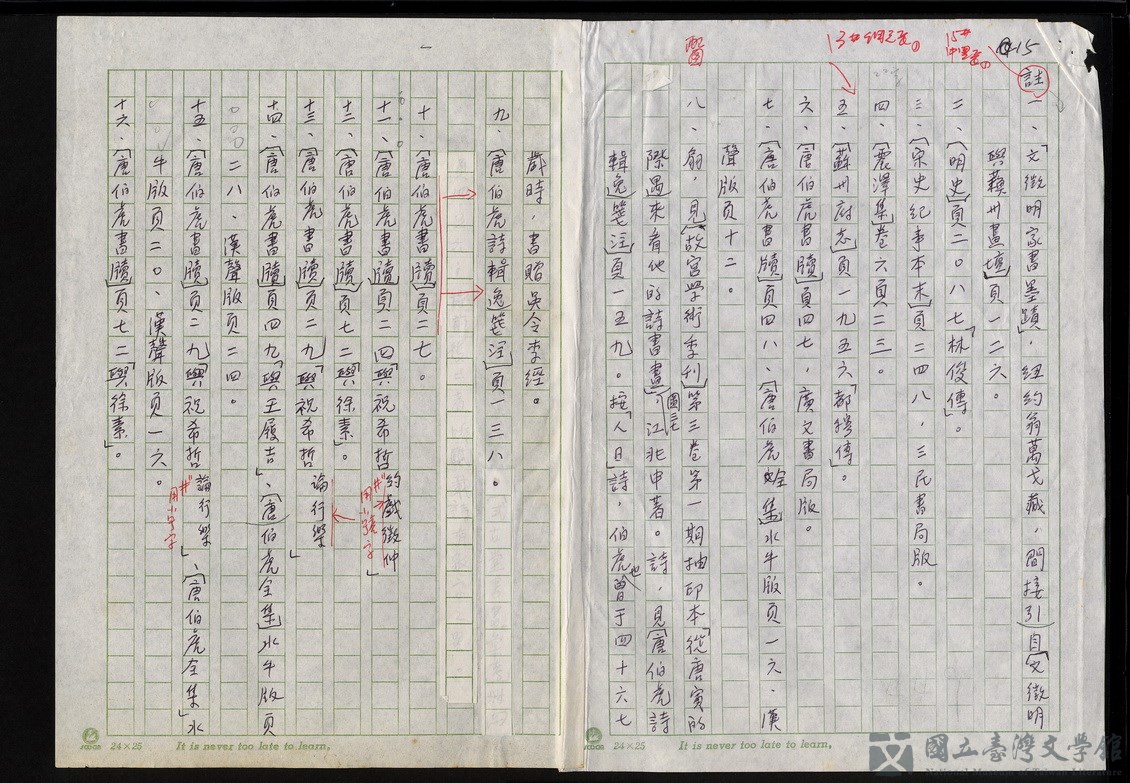 15
15#
13#
註
一、「文徵明家書墨蹟」,紐約翁萬戈藏,間接引自〔文徵明
與蘇州畫壇〕頁一二六。
二、〔明史〕頁二〇八七「林俊傳」。
三、〔宋史紀事本末〕頁二四八,三民書局版。
四、〔震澤集〕卷六頁二三。
五、〔蘇州府志〕頁一九五六「都穆傳」。
六、〔唐伯虎書牘〕頁四七,廣文書局版。
七、〔唐伯虎書牘〕頁四八、〔唐伯虎全集〕水牛版頁一六、漢
聲版頁十二。
八、〔故宮學術季刊〕第三卷第一期抽印本「從唐寅的
際遇來看他的詩書畫」,圖三,江兆申著。詩,見〔唐伯虎詩
輯逸箋注〕頁一五九。按「人日」詩,伯虎也曾于四十六七
歲時,書贈吳令李經。
九、〔唐伯虎詩輯逸箋注〕頁一三八。
十、〔唐伯虎書牘〕頁二七。
十一、〔唐伯虎書牘〕頁二四「與祝希哲約戲徵仲」
用小號字
十二、〔唐伯虎書牘〕頁七二「與徐素」。
十三、〔唐伯虎書牘〕頁二九「與祝希哲論行樂」
十四、〔唐伯虎書牘〕頁四九「與王履吉」、〔唐伯虎全集〕水牛版頁
二八、漢聲版頁二四。
十五、〔唐伯虎書牘〕頁二九「與祝希哲論行樂」、〔唐伯虎全集〕水
用小號字
牛版頁二〇、漢聲版頁一六。
十六、〔唐伯虎書牘〕頁七二「與徐素」。
24×25
It is never too late to learn,
24×25
It is never too late to learn,
國立臺灣文學館
National Museum of Taiwan Literature